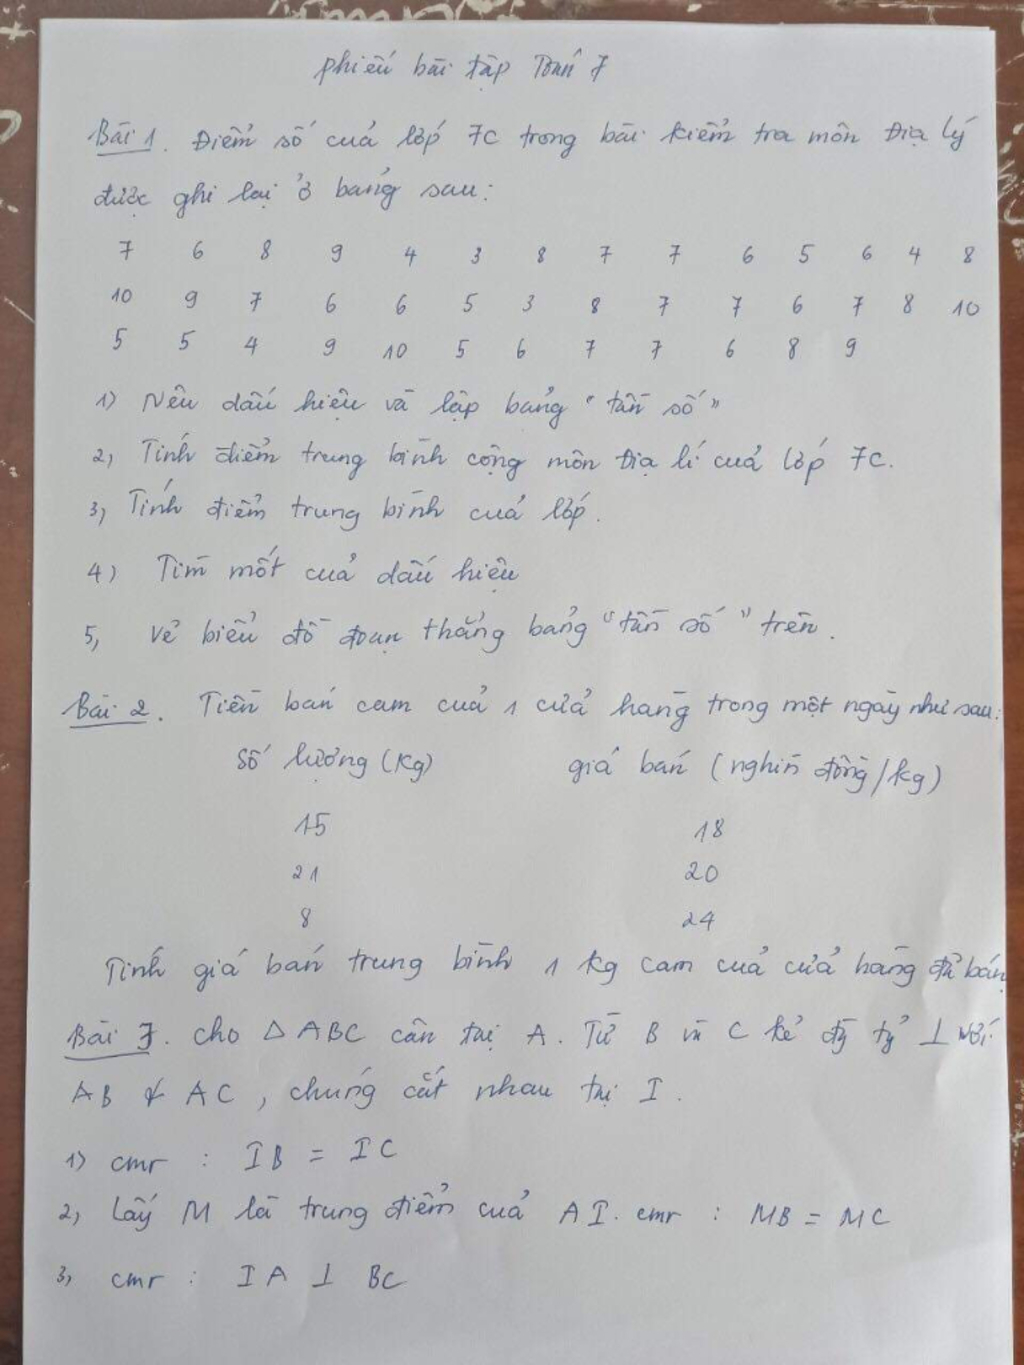 Phiếu bài tập Toán 7
Bài 1. Điểm số của lớp 7C trong bài kiểm tra môn Địa lý
được ghi lại ở bảng sau:
7 6 8 9 4 3 8 7 7 6 5 6 4 8
10 9 7 6 6 5 3 8 7 7 6 7 8 10
5 5 4 9 10 5 6 7 7 6 8 9
1) Nêu dấu hiệu và lập bảng "tần số"
2, Tính điểm trung bình cộng môn Địa lí của lớp 7C.
3, Tính điểm trung bình của lớp.
4) Tìm mốt của dấu hiệu
5, Vẽ biểu đồ đoạn thẳng bảng "tần số" trên.
Bài 2. Tiền bán cam của 1 cửa hàng trong một ngày như sau:
Số lượng (Kg) giá bán (nghìn đồng/kg)
15 18
21 20
8 24
Tính giá bán trung bình 1 kg cam của cửa hàng đã bán
Bài 3. Cho Δ ABC cân tại A. Từ B và C kẻ đg tg ⊥ với
AB & AC, chúng cắt nhau tại I.
1) cmr : IB = IC
2, Lấy M là trung điểm của AI. cmr : MB = MC
3, cmr : IA ⊥ BC